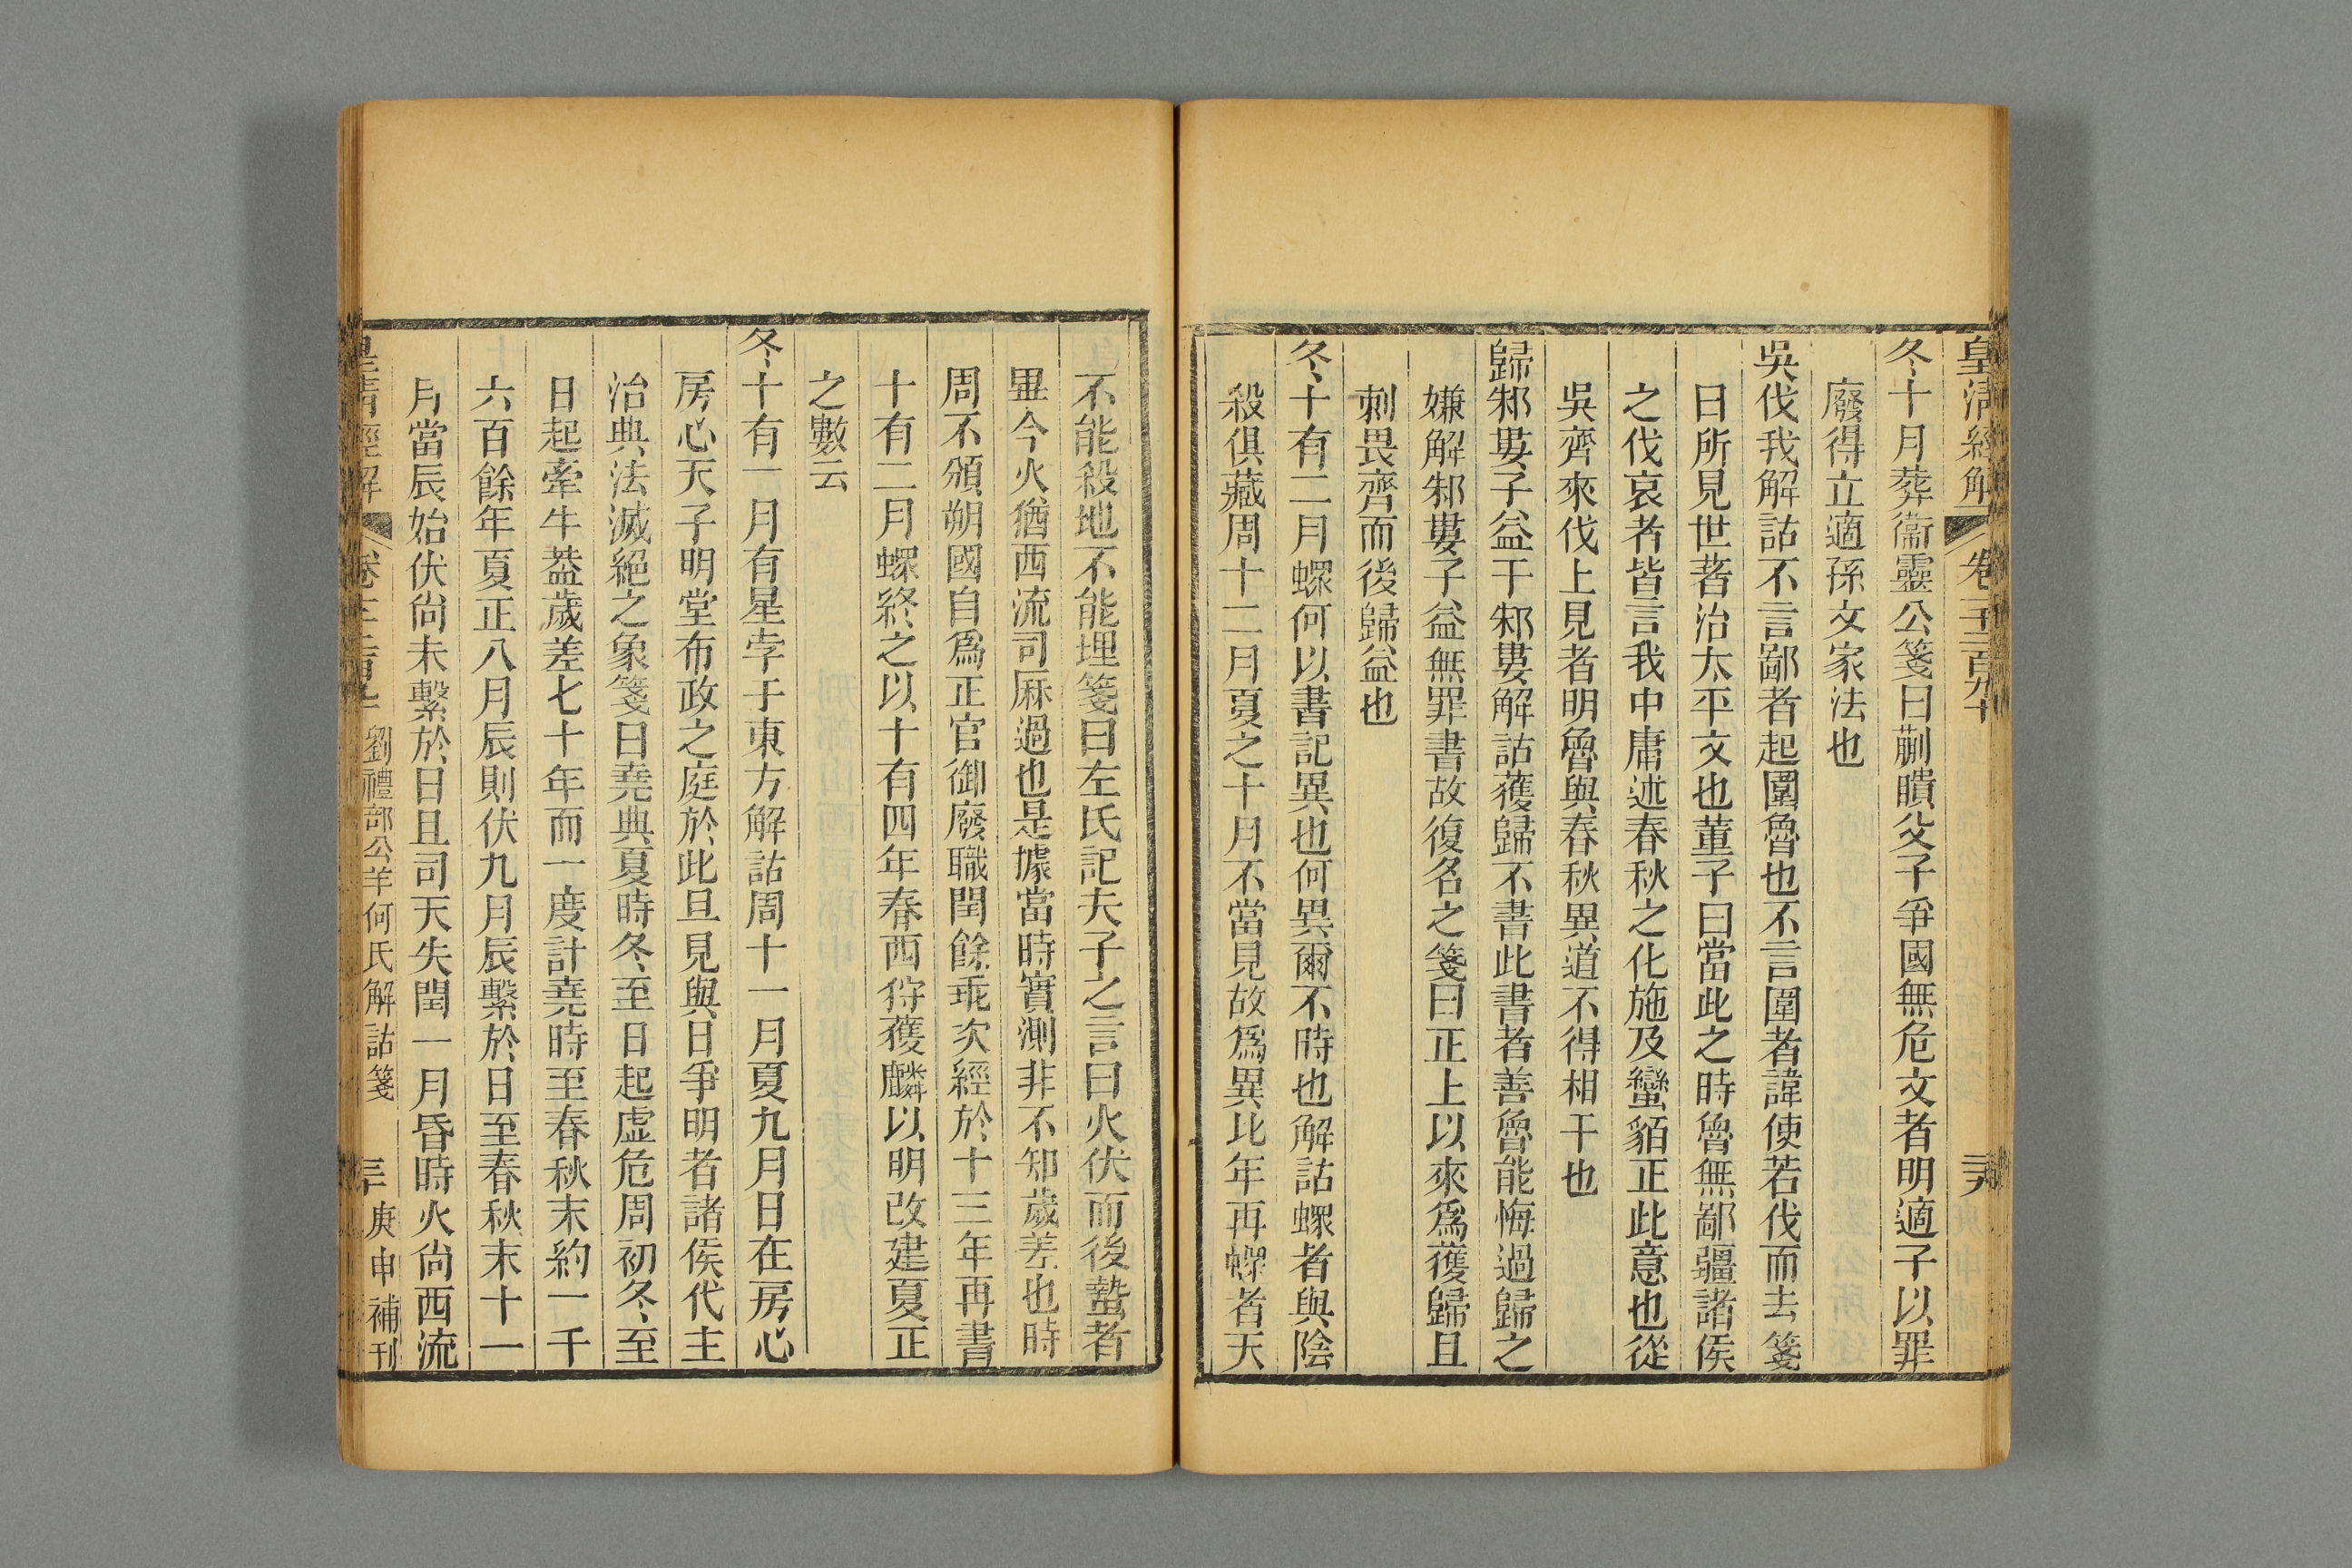 皇清經解 卷千二百九十 三十九
冬十月葬衞靈公箋曰蒯聵父子爭國無危文者明適子以罪
廢得立適孫文家法也
吳伐我解詁不言鄙者起圍魯也不言圍者諱使若伐而去箋
曰所見世著治太平文也董子曰當此之時魯無鄙疆諸侯
之伐哀者皆言我中庸述春秋之化施及蠻貊正此意也從
吳齊來伐上見者明魯與春秋異道不得相干也
歸邾婁子益于邾婁解詁獲歸不書此書者善魯能悔過歸之
嫌解邾婁子益無罪書故復名之箋曰正上以來爲獲歸且
刺畏齊而後歸益也
冬十有二月螺何以書記異也何異爾不時也解詁螺者與陰
殺俱藏周十二月夏之十月不當見故爲異比年再螺者天
不能殺地不能埋箋曰左氏記夫子之言曰火伏而後蟄者
畢今火猶西流司厤過也是據當時實測非不知歲差也時
周不頒朔國自爲正官御廢職閏餘乖次經於十三年再書
十有二月螺終之以十有四年春西狩獲麟以明改建夏正
之數云
冬十有一月有星孛于東方解詁周十一月夏九月日在房心
房心天子明堂布政之庭於此旦見與日爭明者諸侯代主
治典法滅絕之象箋曰堯典夏時冬至日起虛危周初冬至
日起牽牛葢歲差七十年而一度計堯時至春秋末約一千
六百餘年夏正八月辰則伏九月辰繫於日至春秋末十一
月當辰始伏尙未繫於日且司天失閏一月昏時火尙西流
皇清經解 劉禮部公羊何氏解詁箋 庚申補刊